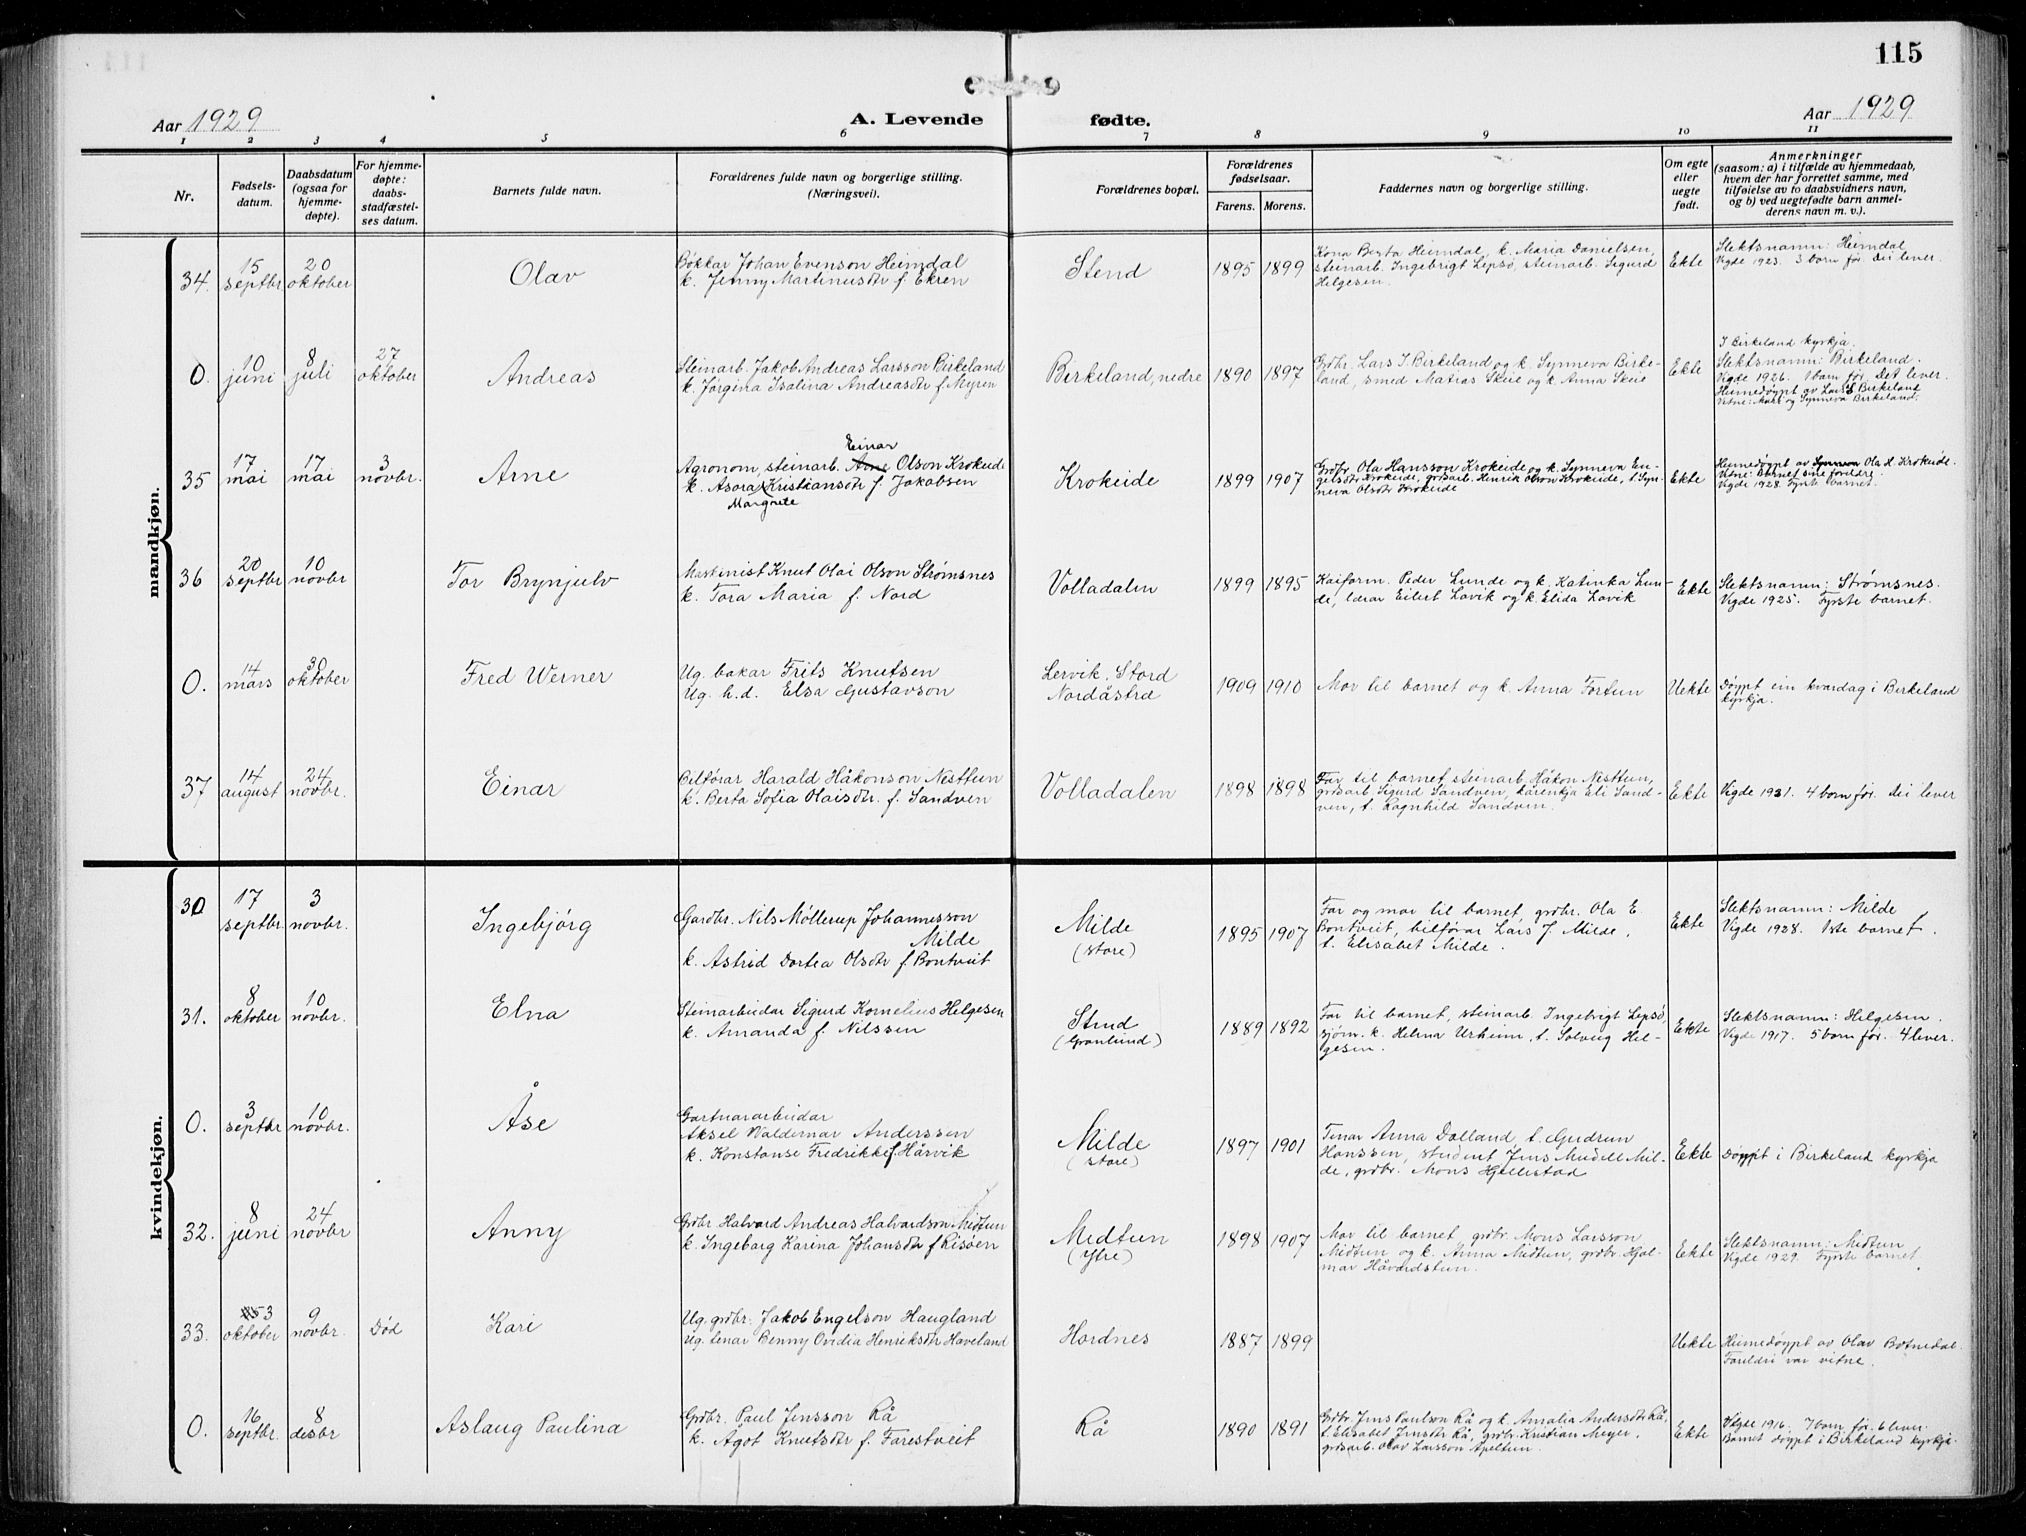 115
Aar 1929
A. Levende fødte.
Aar 1929
1 2 3 4 5 6 7 8 9 10 11
Nr.
Fødsels-
datum.
Daabsdatum
(ogsaa for
hjemme-
døpte).
For hjemme-
døpte:
daabs-
stadfæstel-
ses datum.
Barnets fulde navn.
Forældrenes fulde navn og borgerlige stilling.
(Næringsvei).
Forældrenes bopæl.
Forældrenes
fødselsaar.
Farens. Morens.
Faddernes navn og borgerlige stilling.
Om egte
eller
uegte
født.
Anmerkninger
(saasom: a) i tilfælde av hjemmedaab,
hvem der har forrettet samme, med
tilføielse av to daabsvidners navn,
og b) ved uegtefødte barn anmel-
derens navn m. v.).
mandkjøn.
34.
15
septbr
20
oktober
Olav
Bøkkar Johan Evenson Heimdal
k. Jenny Martinusdtr f. Ekren
Stend
1895 1899
Kona Berta Heimdal, k. Maria Danielsen,
steinarb. Ingebrigt Lepsø, steinarb. Sigurd
Helgesen.
Ekte
Slektsnamn: Heimdal
Vigde 1923. 3 born før. Dei lever.
0.
10
juni
8
juli
27
oktober
Andreas
Steinarb. Jakob Andreas Larsson Birkeland
k. Jørgina Isalina Andreasdtr f. Myren
Birkeland, nedre
1890 1897
Grdbr. Lars J. Birkeland og k. Synneva Birke-
land, smed Matias Skeie og k. Anna Skeie
Ekte
I Birkeland kyrkja.
Slektsnamn: Birkeland.
Vigde 1926. 1 barn før. Det lever.
Heimedøypt av Lars Birkeland
Vitne: og Synneva Birkeland.
35
17
mai
17
mai
3
novbr.
Arne
Einar
Agronom, steinarb. Arne Olson Krokeide
k. Asora Kristiansdtr f. Jakobsen
Margrete
Krokeide
1899 1907
Grdbr. Ola Hansson Krokeide og k. Synneva En-
gelsdtr Krokeide, grdsarb. Henrik Olson Krokeide, t. Syn-
neva Olsdtr Krokeide
Ekte
Heimedøypt av Synneva Ola H. Krokeide.
Vitne: Barnet sine foreldre.
Vigde 1928. Fyrste barnet.
36
20
septbr
10
novbr
Tor Brynjulv
Maskinist Knut Olai Olson Strømsnes
k. Tora Maria f. Nord
Volladalen
1899 1895
Kaiform. Peder Lunde og k. Katinka Lun-
de, lærar Eilert Lavik og k. Elida Lavik
Ekte
Slektsnamn: Strømsnes.
Vigde 1925. Fyrste barnet.
0.
14
mars
30
oktober
Fred Werner
Ug. bakar Frits Knutsen
Ug. h.d. Elsa Gustavson
Lervik, Stord
Nordåstræ
1909 1910
Mor til barnet og k. Anna Fortun
Uekte
Døypt ein kvardag i Birkeland
kyrkja.
37
14
august
24
novbr.
Einar
Bilførar Harald Håkonson Nesttun
k. Berta Sofia Olaisdtr. f. Sandven
Volladalen
1898 1898
Far til barnet, steinarb. Håkon Nesttun,
grdsarb. Sigurd Sandven, kårenkja Eli Sand-
ven, t. Ragnhild Sandven.
Ekte
Vigde 1921. 4 born før. Dei lever
kvindekjøn.
30
17
septbr.
3
novbr.
Ingebjørg
Gardbr. Nils Møllerup Johannesson
Milde
k. Astrid Dortea Olsdtr f. Bontveit
Milde
(store)
1895 1907
Far og mor til barnet, grdbr. Ola E.
Bontveit, bilførar Lars J. Milde,
t. Elisabet Milde.
Ekte
Slektsnamn: Milde
Vigde 1928. 1ste barnet.
31.
8
oktober
10
novbr.
Elna
Steinarbeidar Sigurd Kornelius Helgesen
k. Amanda f. Nilssen
Stend
(Grønlund)
1889 1892
Far til barnet, steinarb. Ingebrigt Lepsø,
sjøm. k. Helena Urheim, t. Solveig Hel-
gesen.
Ekte
Slektsnamn: Helgesen.
Vigde 1917. 5 born før. 4 lever.
0.
3
septbr
10
novbr.
Åse
Gartnararbeidar
Aksel Waldemar Anderssen
k. Konstanse Fredrikke f. Hårvik
Milde
(store)
1897 1901
Tenar Anna Dolland, t. Gudrun
Hanssen, student Jens Mudell Mil-
de, grdbr. Mons Hjellestad
Ekte
Døypt i Birkeland kyrkja
32.
8
juni
24
novbr
Anny
Grdbr. Halvard Andreas Halvardson Midtun
k. Ingeborg Karina Johansdtr f. Risøen
Midtun
(Ytre)
1898 1907
Mor til barnet, grdbr. Mons Larsson
Midtun og k. Anna Midtun, grdbr. Hjal-
mar Håvardstun.
Ekte
Slektsnamn: Midtun
Vigde 1929. Fyrste barnet.
33.
3
oktober
9
novbr.
Død
Kari
Ug. grdbr. Jakob Engelson Haugland
Ug. tenar Benny Ovidia Henriksdtr Haveland
Hordnes
1887 1899
Uekte
Heimedøypt av Olav Botnedal.
Foreldri var vitne.
0.
16
septbr.
8
desbr
Aslaug Paulina
Grdbr. Paul Jensson Rå
k. Agot Knutsdtr f. Farestveit
Rå
1890 1891
Grdbr. Jens Paulson Rå og k. Amalia Andersdtr Rå,
t. Elisabet Jensdtr Rå, grdbr. Kristian Meyer,
grdsarb. Olav Larsson Apeltun.
Ekte
Vigde 1916. 7 born før. 6 lever.
Barnet døypt i Birkeland kyrkja.